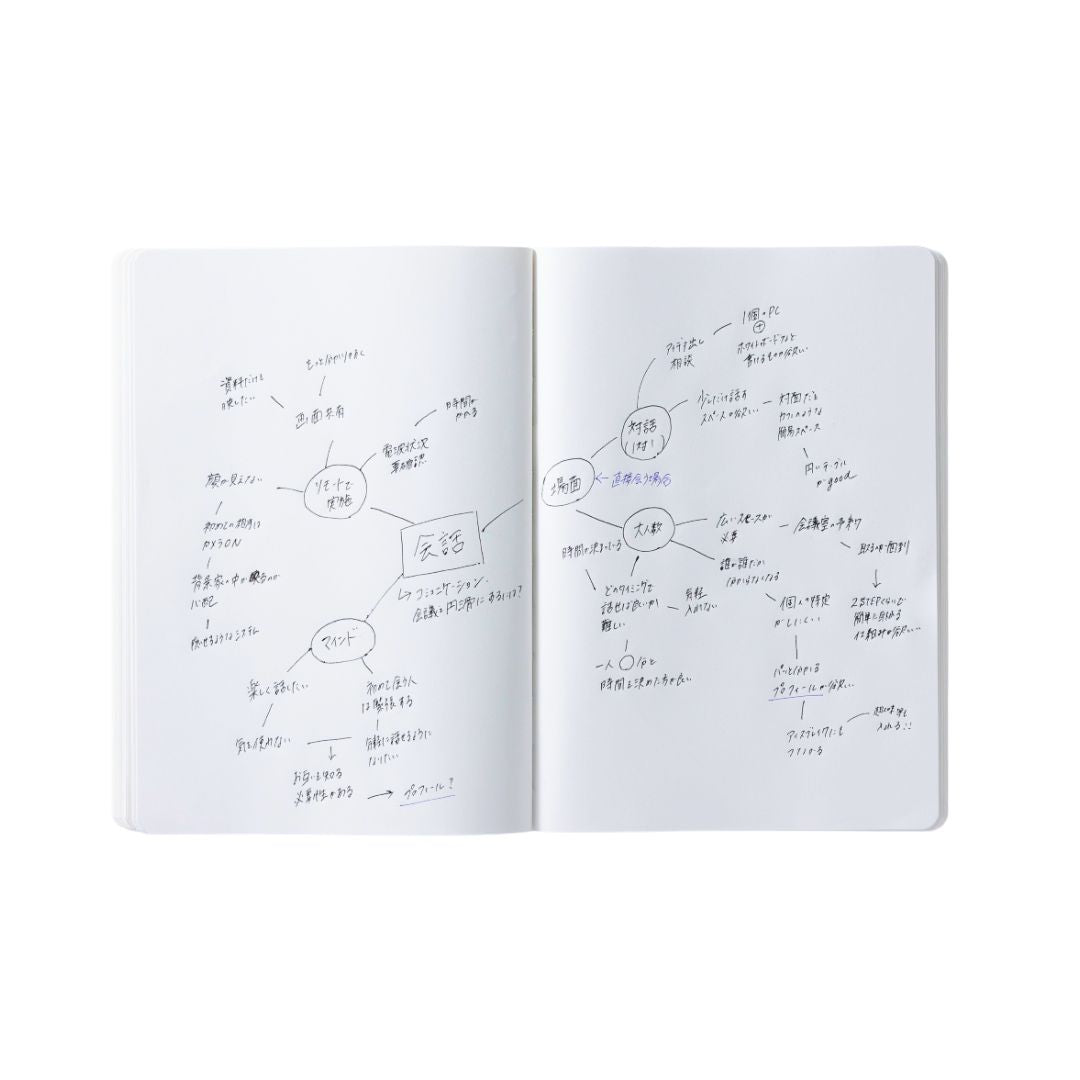 もっと分かりやすく
資料だけを
映したい
画面共有
時間が
かかる
電波状況
事前確認
リモートで
実施
顔が見えない
初めての相手は
カメラON
背景家の中が映るのが
心配
隠せるようなシステム
会話
↳ コミュニケーション
会議を円滑にするには?
マインド
楽しく話したい
初めて使う人
は緊張する
気を使わない
気軽に話せるように
なりたい
お互いを知る
必要性がある
プロフィール?
場面
← 直接会う場合
対話
(1対1)
アイデア出し
相談
1個のPC
+
ホワイトボードなど
書けるものが欲しい
少しだけ話す
スペースが欲しい
対面だと
カフェのような
簡易スペース
円いテーブル
がgood
大人数
時間が決まっている
どのタイミングで
話せば良いか
難しい
一人○分と
時間を決めた方が良い
広いスペースが
必要
会議室の予約
取るのが面倒
2STEPくらいで
簡単に取れる
仕組みが欲しい
誰が誰だか
分からなくなる
個人の特定
がしにくい
パッと分かる
プロフィールが欲しい
アイスブレイクにも
つながる